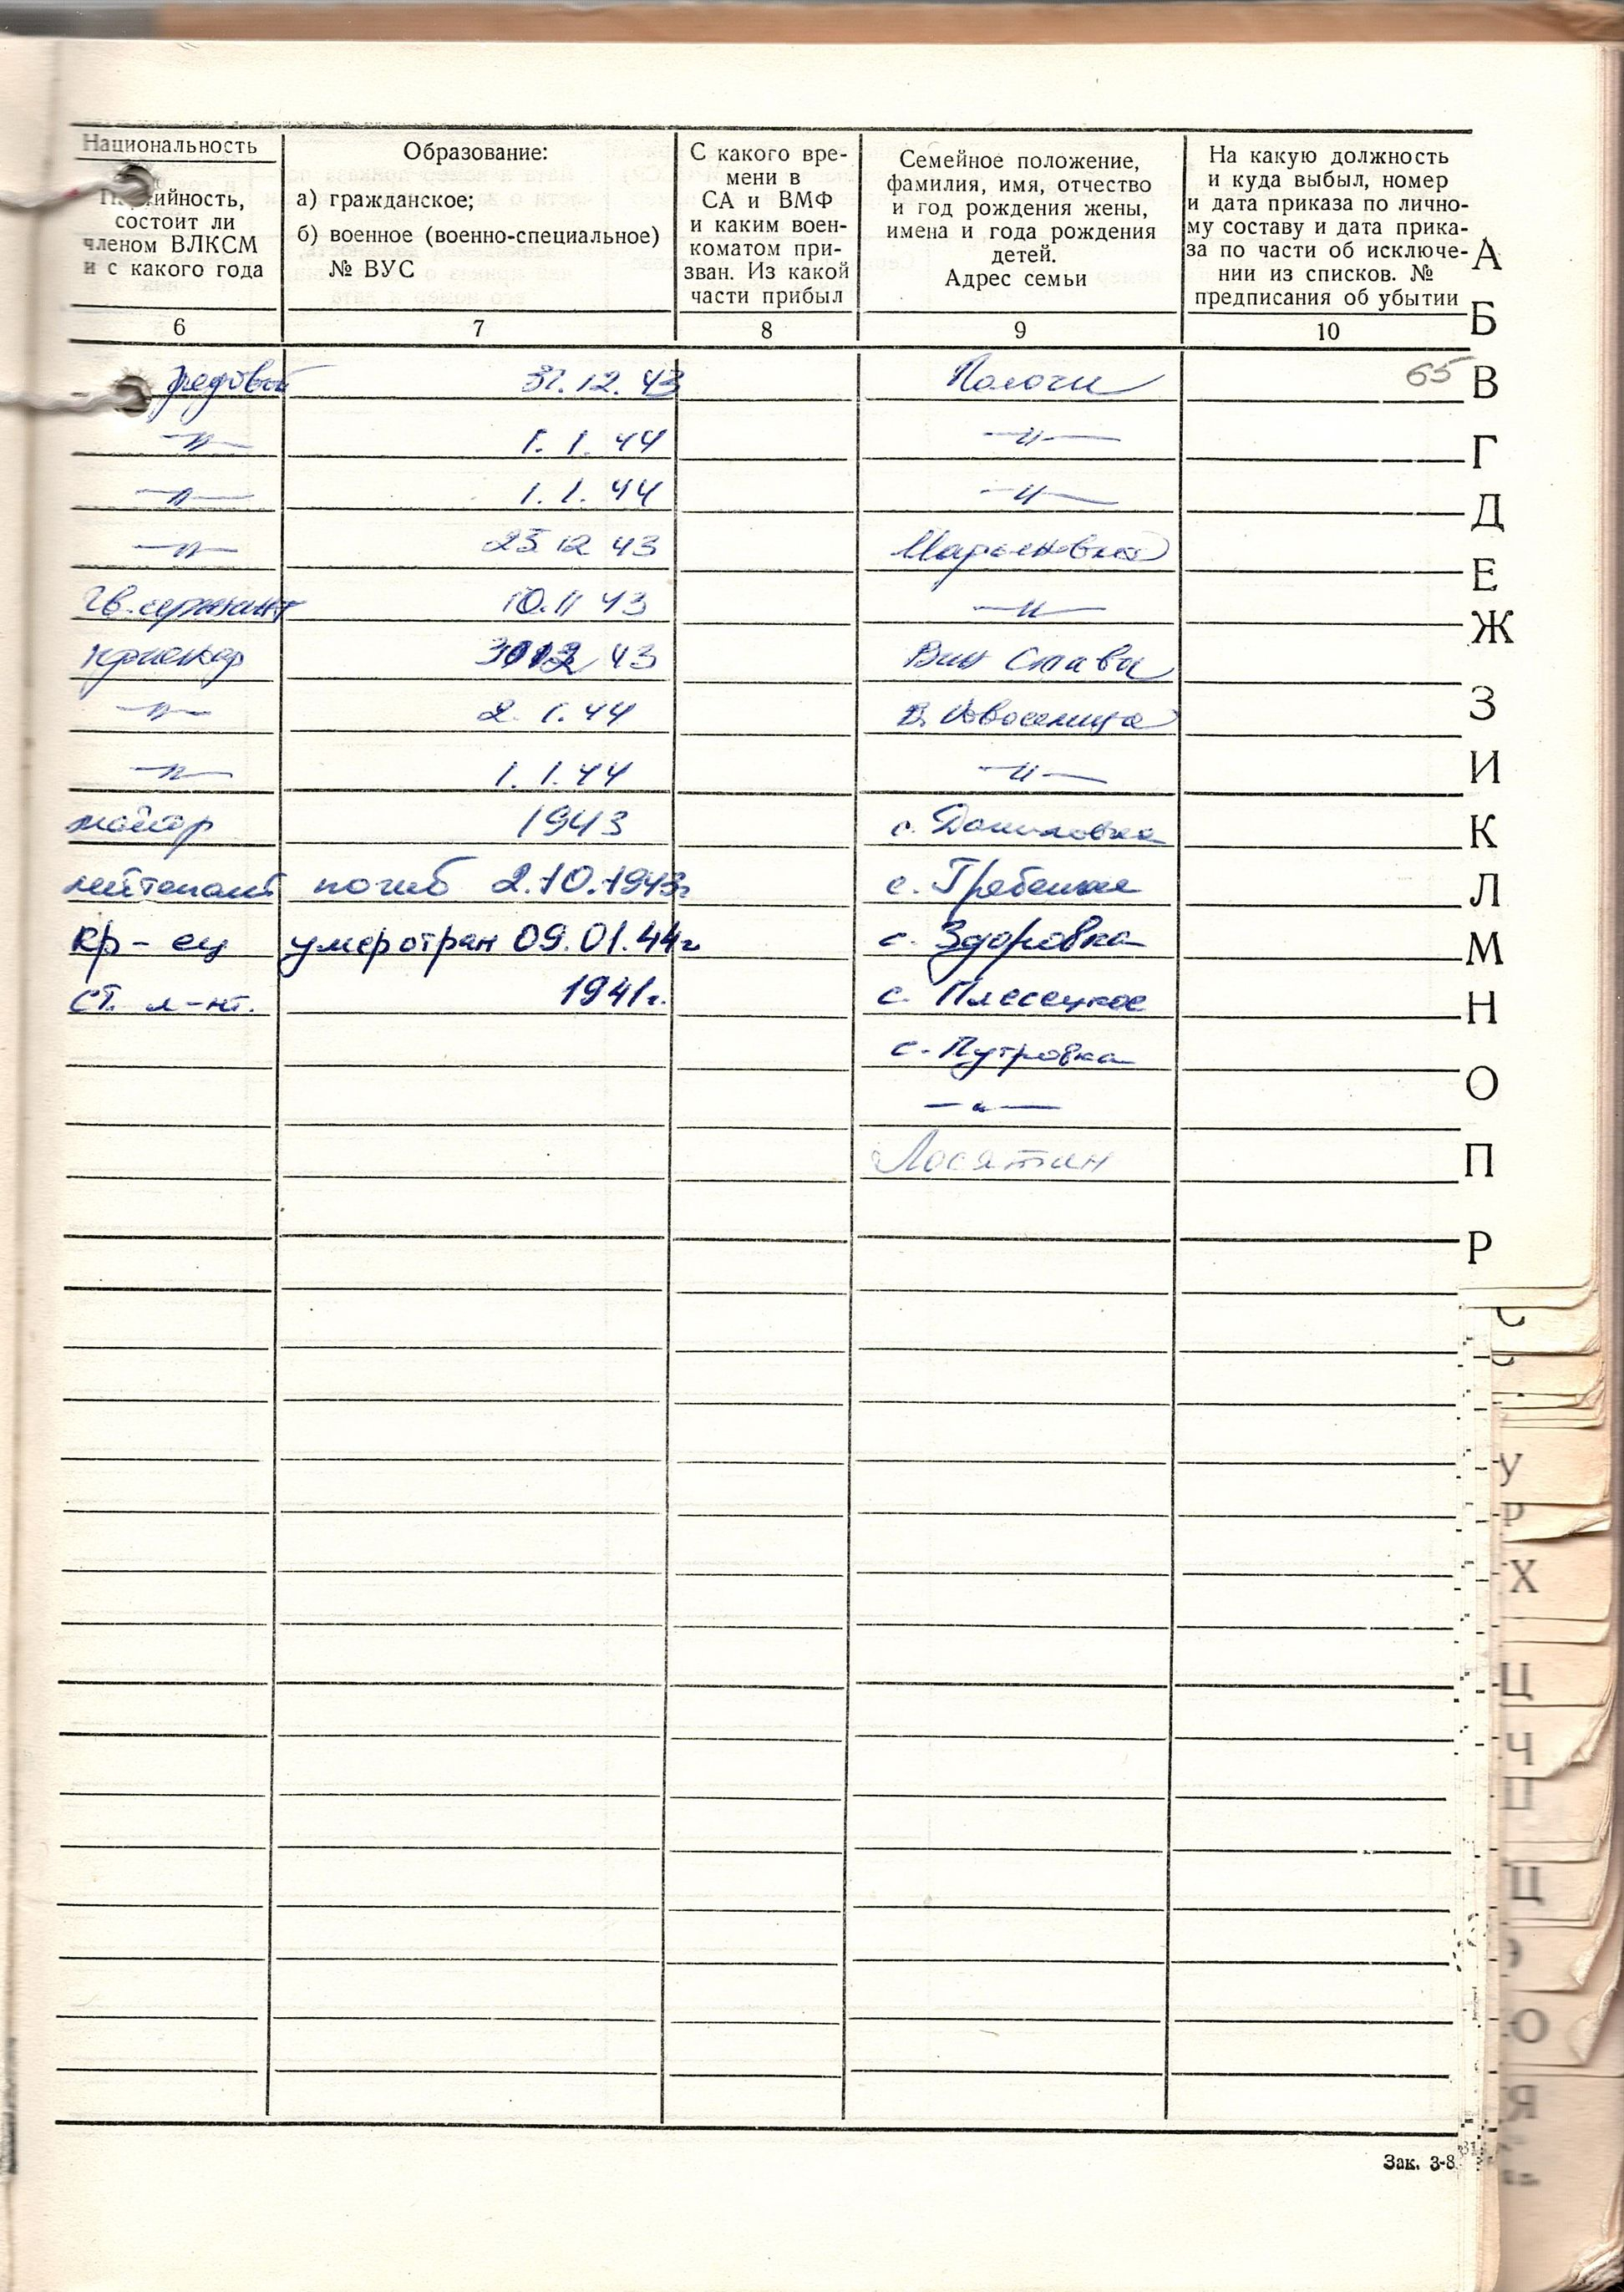 Национальность
Партийность,
состоит ли
членом ВЛКСМ
и с какого года
Образование:
а) гражданское;
б) военное (военно-специальное)
№ ВУС
С какого вре-
мени в
СА и ВМФ
и каким воен-
коматом при-
зван. Из какой
части прибыл
Семейное положение,
фамилия, имя, отчество
и год рождения жены,
имена и года рождения
детей.
Адрес семьи
На какую должность
и куда выбыл, номер
и дата приказа по лично-
му составу и дата прика-
за по части об исключе-
нии из списков. №
предписания об убытии
6 7 8 9 10
рядовой 31.12.43 Пологи 65
—"— 1.1.44 —"—
—"— 1.1.44 —"—
—"— 25 12 43 Марьяновка
гв. сержант 10.11 43 —"—
43 Вин Ставы
—"— 2.1.44 В. Новоселица
—"— 1.1.44 —"—
майор 1943 с.
лейтенант погиб 2.10.1943г с. Гребенки
кр-ец умер от ран 09.01.44г с. Здоровка
ст. л-нт. 1941г. с. Плесецкое
с. Путровка
—"—
Лосятин
А
Б
В
Г
Д
Е
Ж
З
И
К
Л
М
Н
О
П
Р
С
У
Х
Ц
Ч
Ю
Я
Зак. 3-8